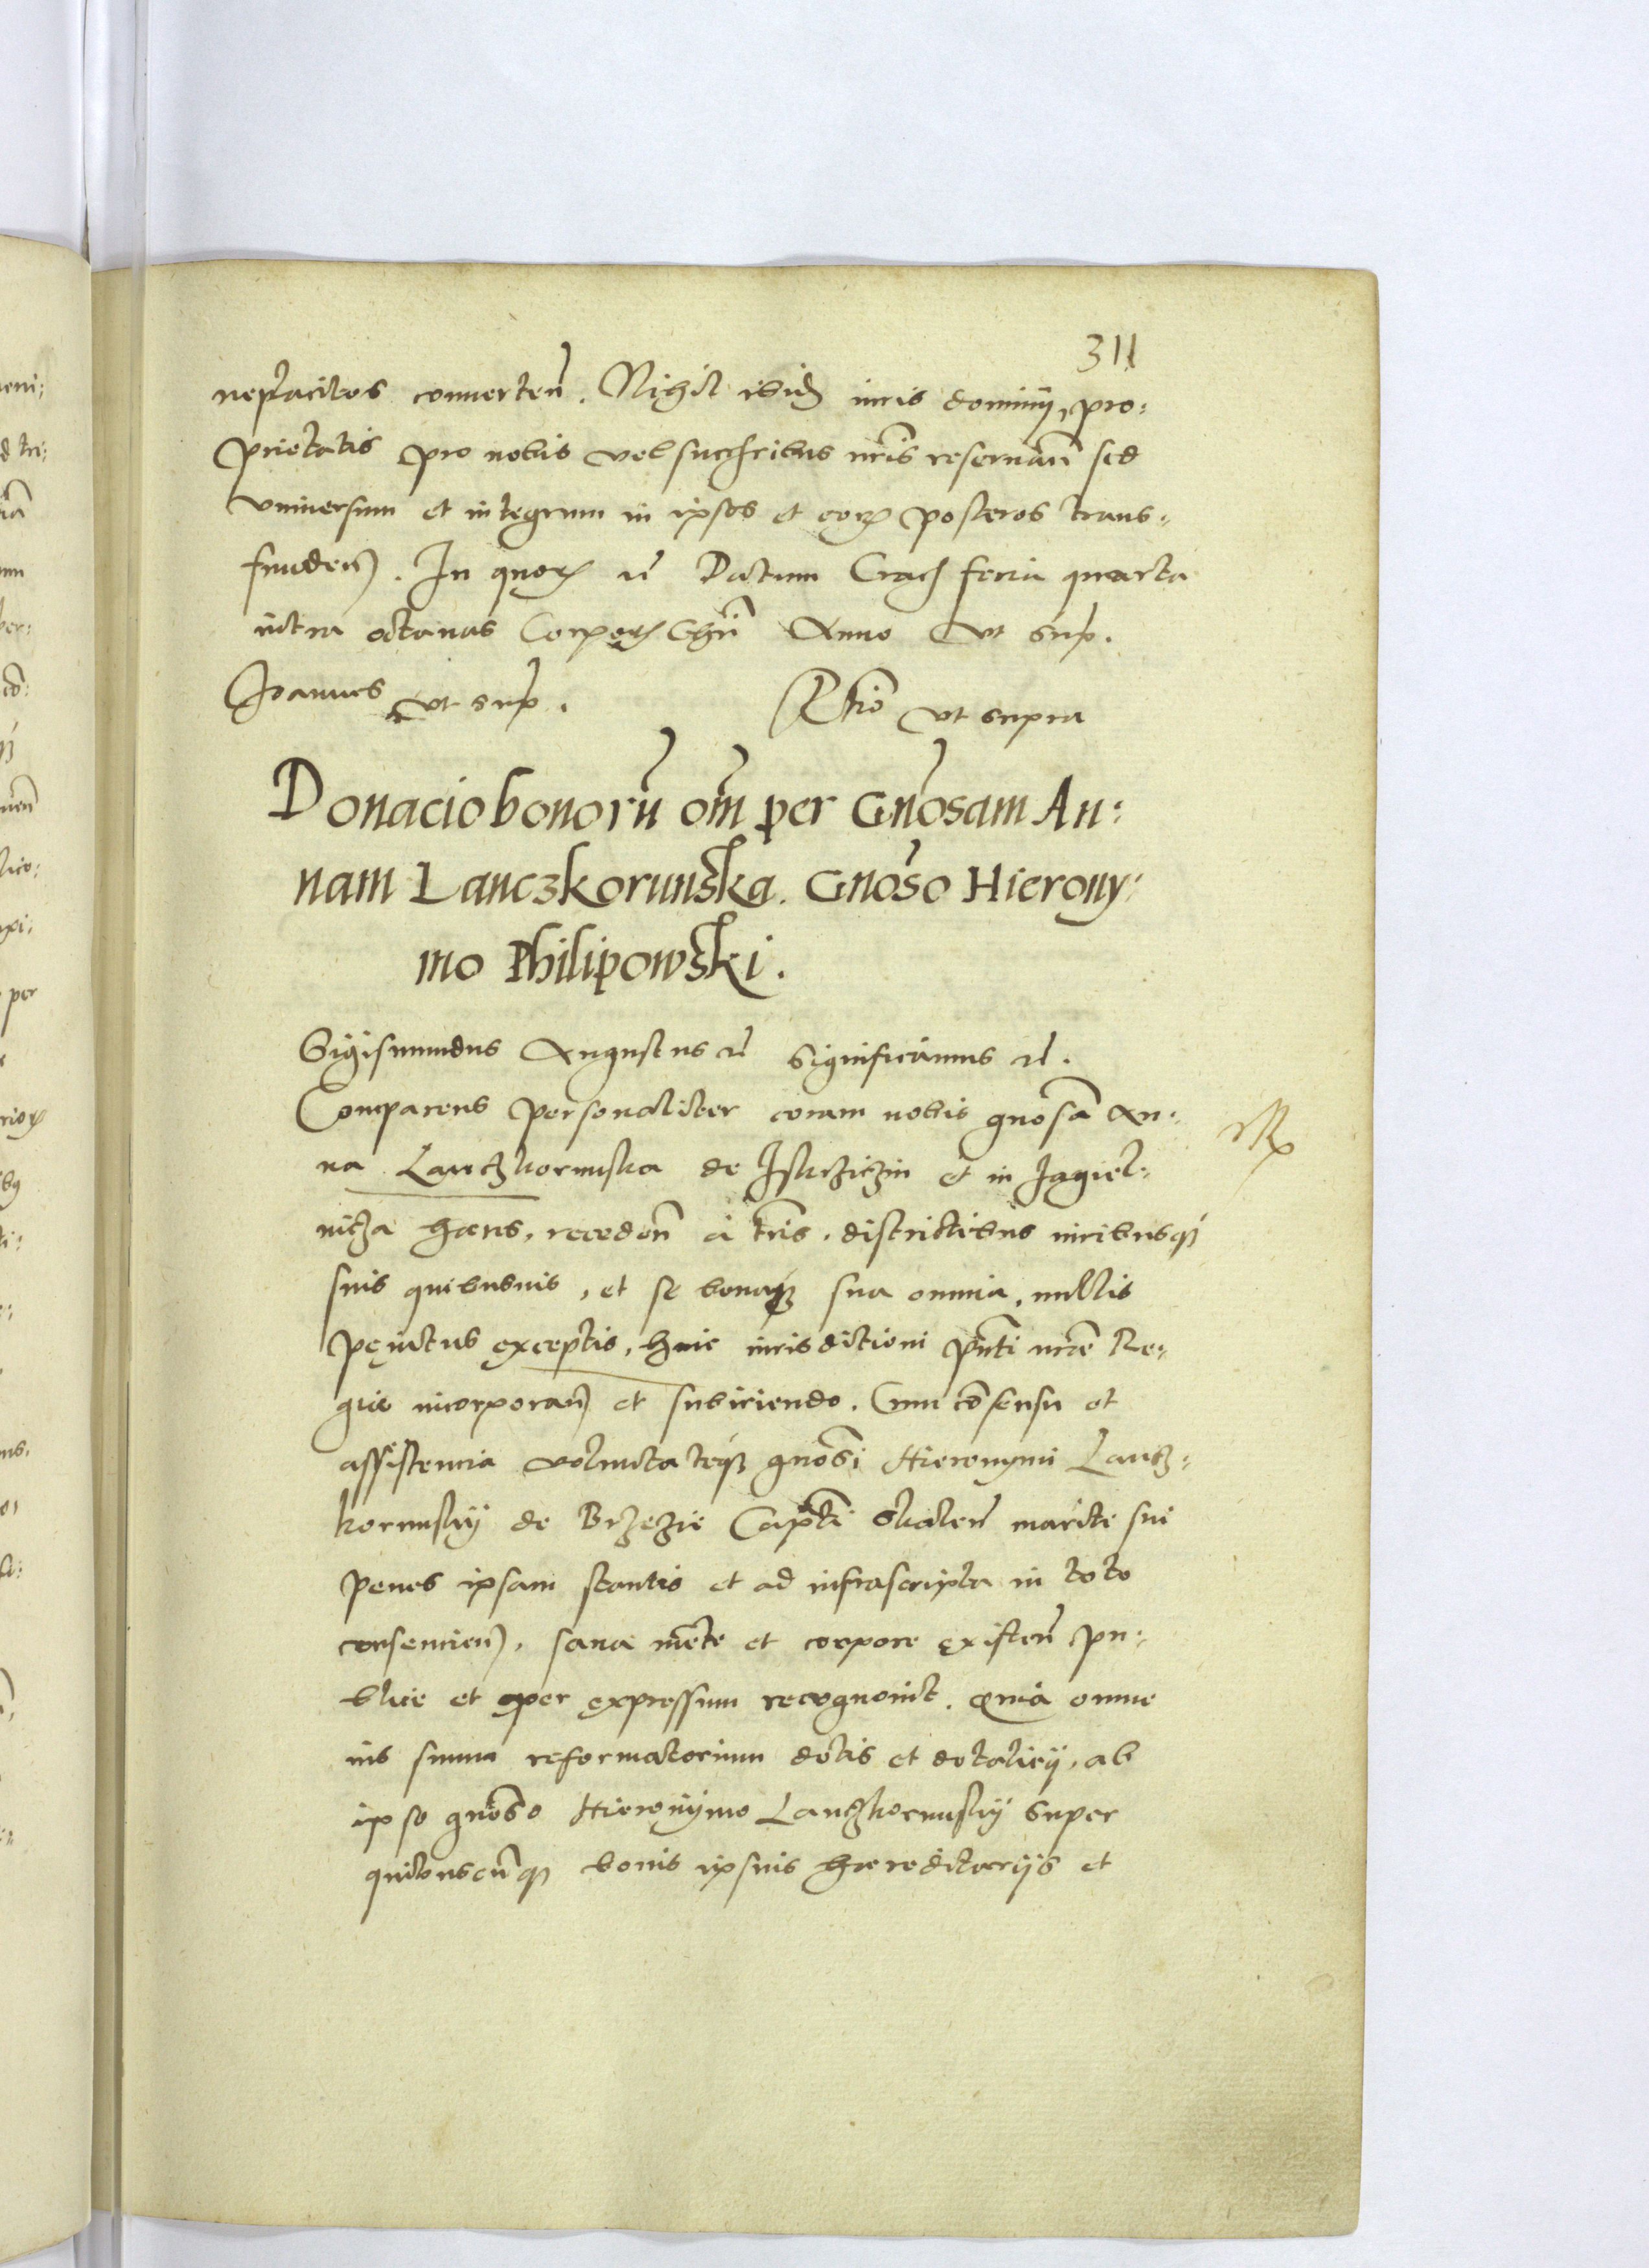 311
neplacitos conuerten̄. Nihil ibid iuris dominÿ, pro:
prietatis pro nobis vel successoribus nr̄is reseruan̄ sed
vniuersum et integrum in ipsos et eorꝝ posteros trans:
funden̄. In quorꝝ rē Datum Crac̄ feria quarta
intra octauas Corporꝭ Chrī Anno vt sup.
Joannes vt sup. Rtio vt supra
Donacio bonorū om̄ per Gnōsam An:
nam Lanczkorunska. Gnōso Hierony:
mo Philipowski.
Sigismundus Augustus rē significamus rē.
Comparens personaliter coram nobis gnōsa An:
na Lanczkorunska de et in Jagiel:
nicza hæres, receden̄ a tr̄is, districtibus iuribusqꝫ
suis quibusuis, et se bonaqꝫ sua omnia, nullis
penitus exceptis, huic iurisdictioni pn̄ti nr̄æ Re:
giæ incorporan̄ et subiiciendo. Cum cōsensu et
assistencia voluntateqꝫ gnōsi Hieronymi Lancz:
korunskÿ de Brzezie Capt̄i Skalen̄ marite sui
penes ipsam stantis et ad infrascripta in toto
consencien̄, sana mēte et corpore existen̄ pu:
blice et per expressum recognouit. Quia omne
ius suum reformatorium dotis et dotalicÿ, ab
ipso gnōso Hieronÿmo Lanczkorunskÿ super
quibuscūqꝫ bonis ipsius hæreditarijs et